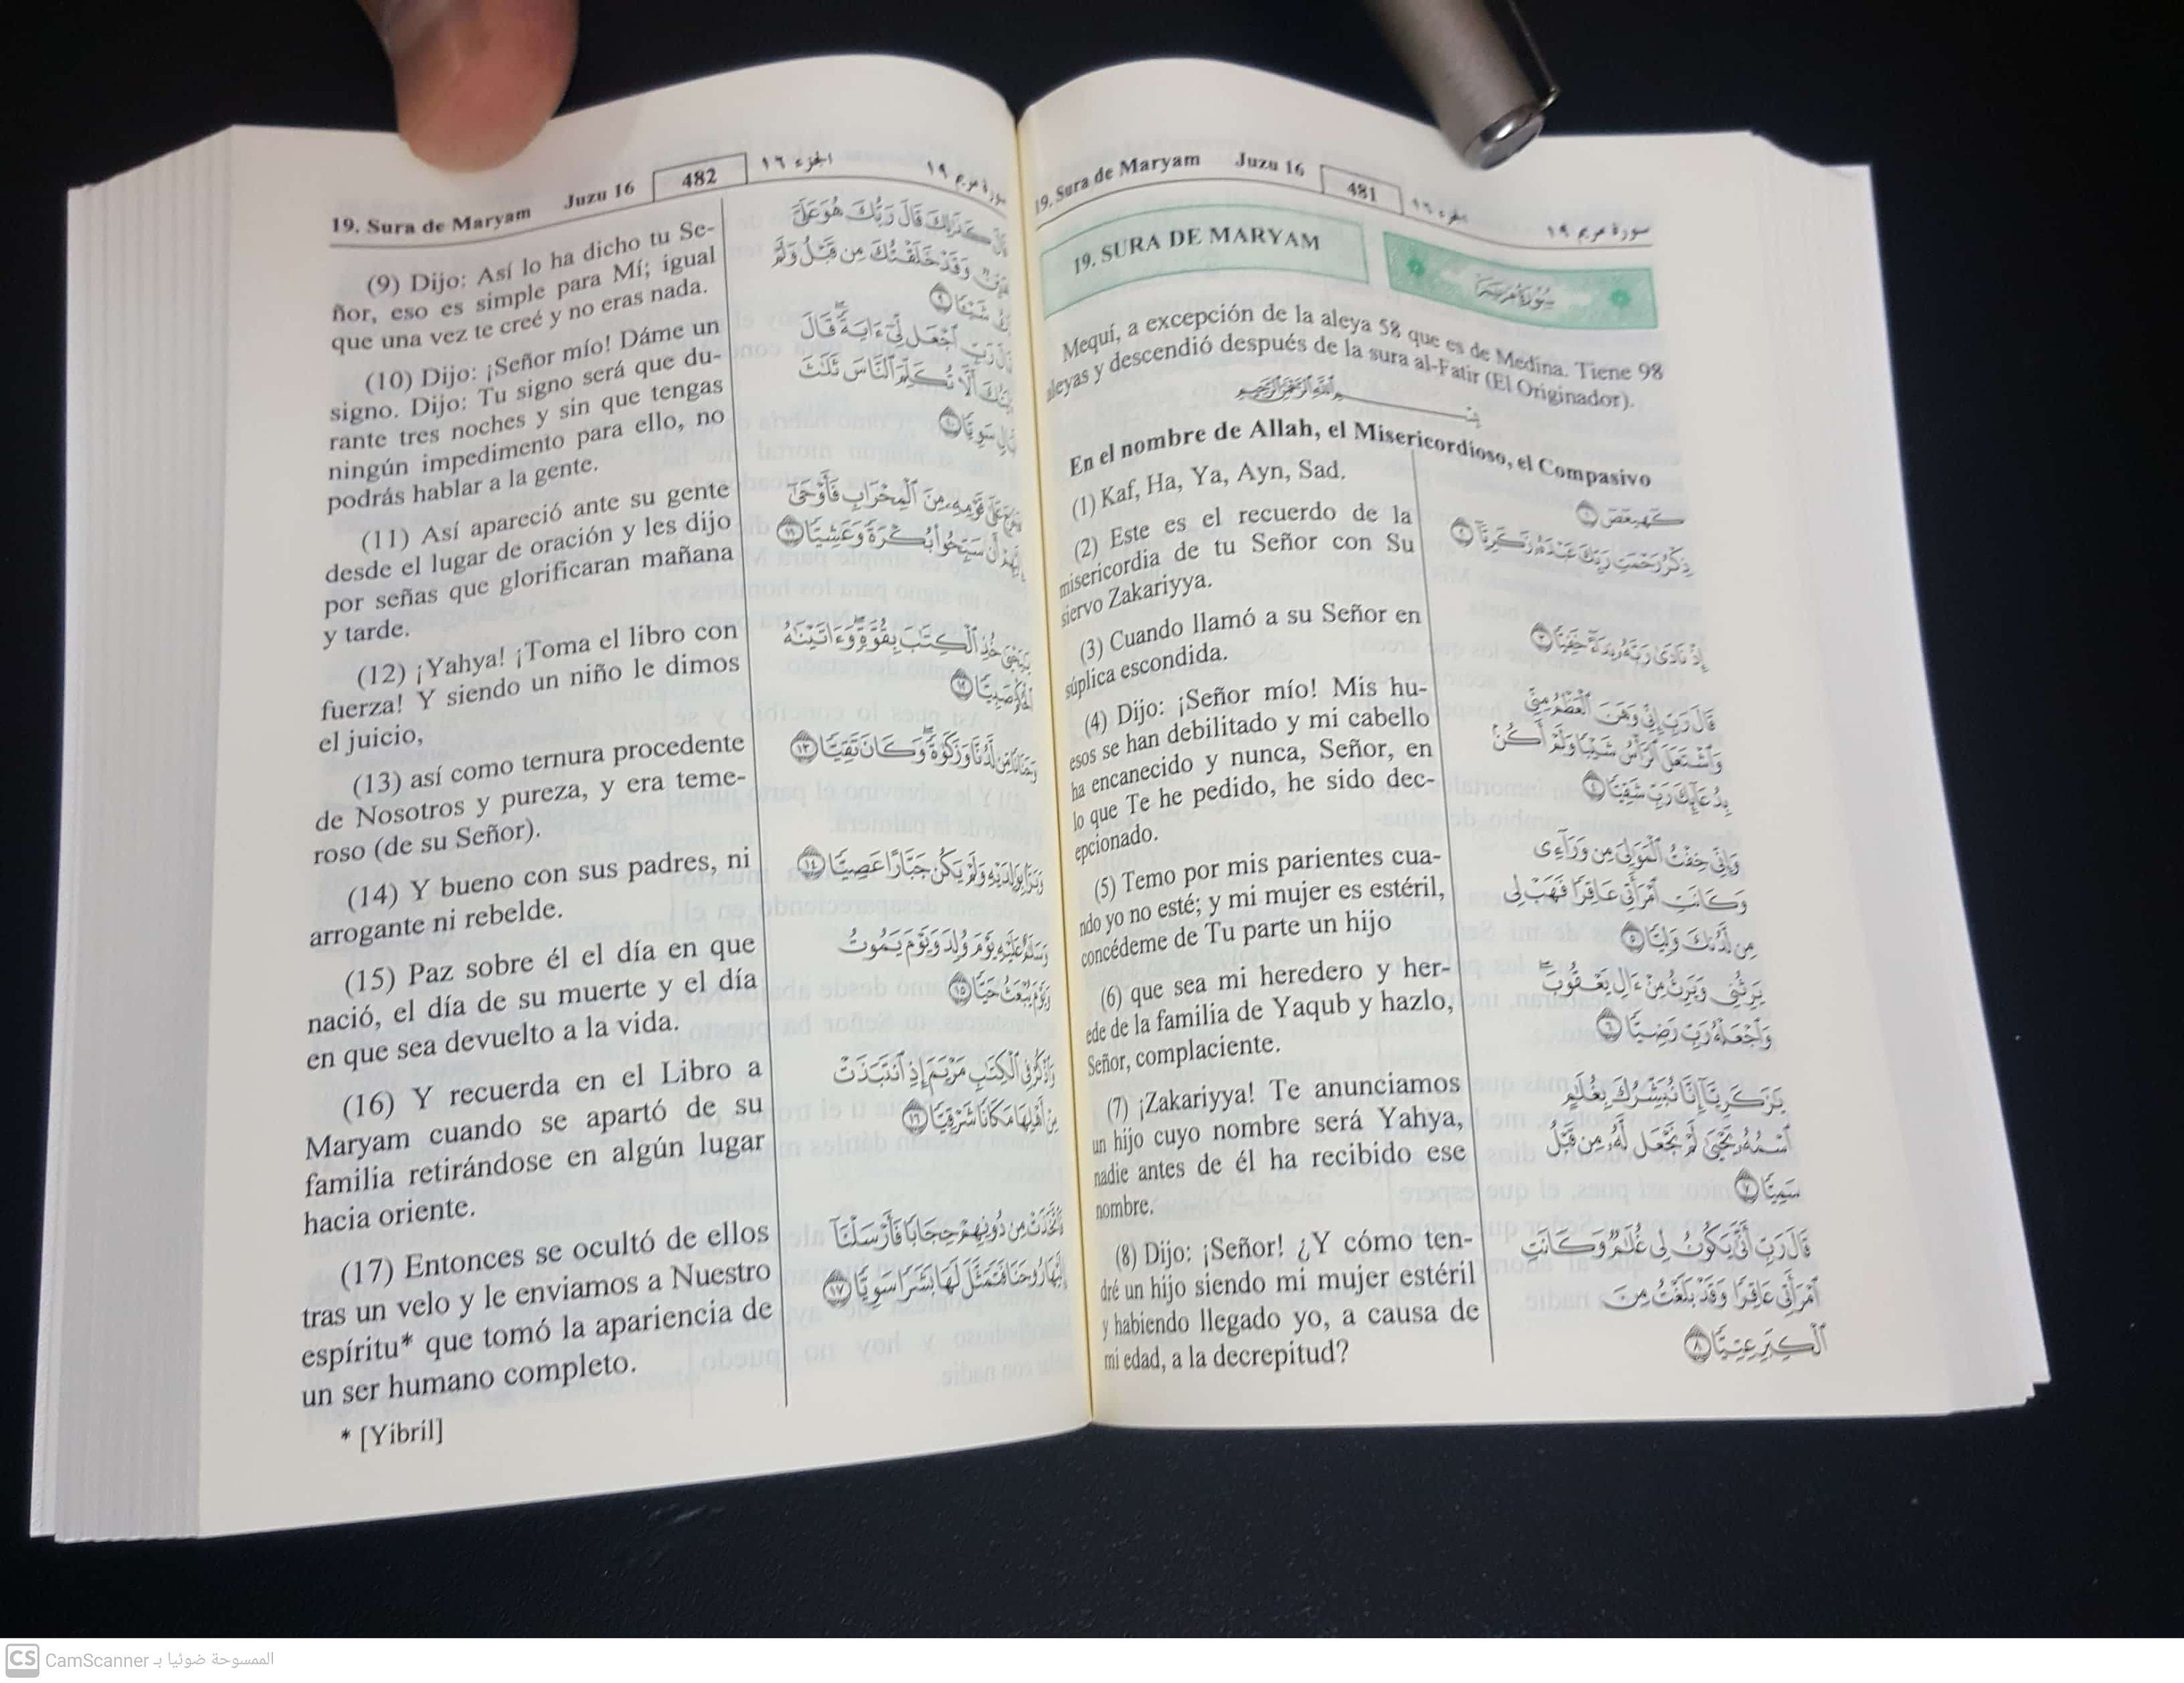 19. Sura de Maryam Juzu 16 481 الجزء ١٦ سورة مريم ١٩
19. SURA DE MARYAM
سُورَةُ مَرْيَمَ
Mequí, a excepción de la aleya 58 que es de Medina. Tiene 98
aleyas y descendió después de la sura al-Fatir (El Originador).
بِسْمِ ٱللَّهِ ٱلرَّحْمَٰنِ ٱلرَّحِيمِ
En el nombre de Allah, el Misericordioso, el Compasivo
(1) Kaf, Ha, Ya, Ayn, Sad.
(2) Este es el recuerdo de la
misericordia de tu Señor con Su
siervo Zakariyya.
(3) Cuando llamó a su Señor en
súplica escondida.
(4) Dijo: ¡Señor mío! Mis hu-
esos se han debilitado y mi cabello
ha encanecido y nunca, Señor, en
lo que Te he pedido, he sido dec-
epcionado.
(5) Temo por mis parientes cua-
ndo yo no esté; y mi mujer es estéril,
concédeme de Tu parte un hijo
(6) que sea mi heredero y her-
ede de la familia de Yaqub y hazlo,
Señor, complaciente.
(7) ¡Zakariyya! Te anunciamos
un hijo cuyo nombre será Yahya,
nadie antes de él ha recibido ese
nombre.
(8) Dijo: ¡Señor! ¿Y cómo ten-
dré un hijo siendo mi mujer estéril
y habiendo llegado yo, a causa de
mi edad, a la decrepitud?
كٓهيعٓصٓ ١
ذِكْرُ رَحْمَتِ رَبِّكَ عَبْدَهُۥ زَكَرِيَّآ ٢
إِذْ نَادَىٰ رَبَّهُۥ نِدَآءً خَفِيًّا ٣
قَالَ رَبِّ إِنِّى وَهَنَ ٱلْعَظْمُ مِنِّى
وَٱشْتَعَلَ ٱلرَّأْسُ شَيْبًا وَلَمْ أَكُنۢ
بِدُعَآئِكَ رَبِّ شَقِيًّا ٤
وَإِنِّى خِفْتُ ٱلْمَوَٰلِىَ مِن وَرَآءِى
وَكَانَتِ ٱمْرَأَتِى عَاقِرًا فَهَبْ لِى
مِن لَّدُنكَ وَلِيًّا ٥
يَرِثُنِى وَيَرِثُ مِنْ ءَالِ يَعْقُوبَ ۖ
وَٱجْعَلْهُ رَبِّ رَضِيًّا ٦
يَٰزَكَرِيَّآ إِنَّا نُبَشِّرُكَ بِغُلَٰمٍ
ٱسْمُهُۥ يَحْيَىٰ لَمْ نَجْعَل لَّهُۥ مِن قَبْلُ
سَمِيًّا ٧
قَالَ رَبِّ أَنَّىٰ يَكُونُ لِى غُلَٰمٌ وَكَانَتِ
ٱمْرَأَتِى عَاقِرًا وَقَدْ بَلَغْتُ مِنَ
ٱلْكِبَرِ عِتِيًّا ٨
19. Sura de Maryam Juzu 16 482 الجزء ١٦ سورة مريم ١٩
(9) Dijo: Así lo ha dicho tu Se-
ñor, eso es simple para Mí; igual
que una vez te creé y no eras nada.
(10) Dijo: ¡Señor mío! Dáme un
signo. Dijo: Tu signo será que du-
rante tres noches y sin que tengas
ningún impedimento para ello, no
podrás hablar a la gente.
(11) Así apareció ante su gente
desde el lugar de oración y les dijo
por señas que glorificaran mañana
y tarde.
(12) ¡Yahya! ¡Toma el libro con
fuerza! Y siendo un niño le dimos
el juicio,
(13) así como ternura procedente
de Nosotros y pureza, y era teme-
roso (de su Señor).
(14) Y bueno con sus padres, ni
arrogante ni rebelde.
(15) Paz sobre él el día en que
nació, el día de su muerte y el día
en que sea devuelto a la vida.
(16) Y recuerda en el Libro a
Maryam cuando se apartó de su
familia retirándose en algún lugar
hacia oriente.
(17) Entonces se ocultó de ellos
tras un velo y le enviamos a Nuestro
espíritu* que tomó la apariencia de
un ser humano completo.
* [Yibril]
كَذَٰلِكَ قَالَ رَبُّكَ هُوَ عَلَىَّ
وَقَدْ خَلَقْتُكَ مِن قَبْلُ وَلَمْ
شَيْـًٔا ٩
رَبِّ ٱجْعَل لِّىٓ ءَايَةً ۚ قَالَ
أَلَّا تُكَلِّمَ ٱلنَّاسَ ثَلَٰثَ
سَوِيًّا ١٠
عَلَىٰ قَوْمِهِۦ مِنَ ٱلْمِحْرَابِ فَأَوْحَىٰٓ
أَن سَبِّحُوا۟ بُكْرَةً وَعَشِيًّا ١١
يَٰيَحْيَىٰ خُذِ ٱلْكِتَٰبَ بِقُوَّةٍ ۖ وَءَاتَيْنَٰهُ
ٱلْحُكْمَ صَبِيًّا ١٢
وَحَنَانًا مِّن لَّدُنَّا وَزَكَوٰةً ۖ وَكَانَ تَقِيًّا ١٣
وَبَرًّۢا بِوَٰلِدَيْهِ وَلَمْ يَكُن جَبَّارًا عَصِيًّا ١٤
وَسَلَٰمٌ عَلَيْهِ يَوْمَ وُلِدَ وَيَوْمَ يَمُوتُ
وَيَوْمَ يُبْعَثُ حَيًّا ١٥
وَٱذْكُرْ فِى ٱلْكِتَٰبِ مَرْيَمَ إِذِ ٱنتَبَذَتْ
مِنْ أَهْلِهَا مَكَانًا شَرْقِيًّا ١٦
فَٱتَّخَذَتْ مِن دُونِهِمْ حِجَابًا فَأَرْسَلْنَآ
إِلَيْهَا رُوحَنَا فَتَمَثَّلَ لَهَا بَشَرًا سَوِيًّا ١٧
CS CamScanner الممسوحة ضوئيا بـ